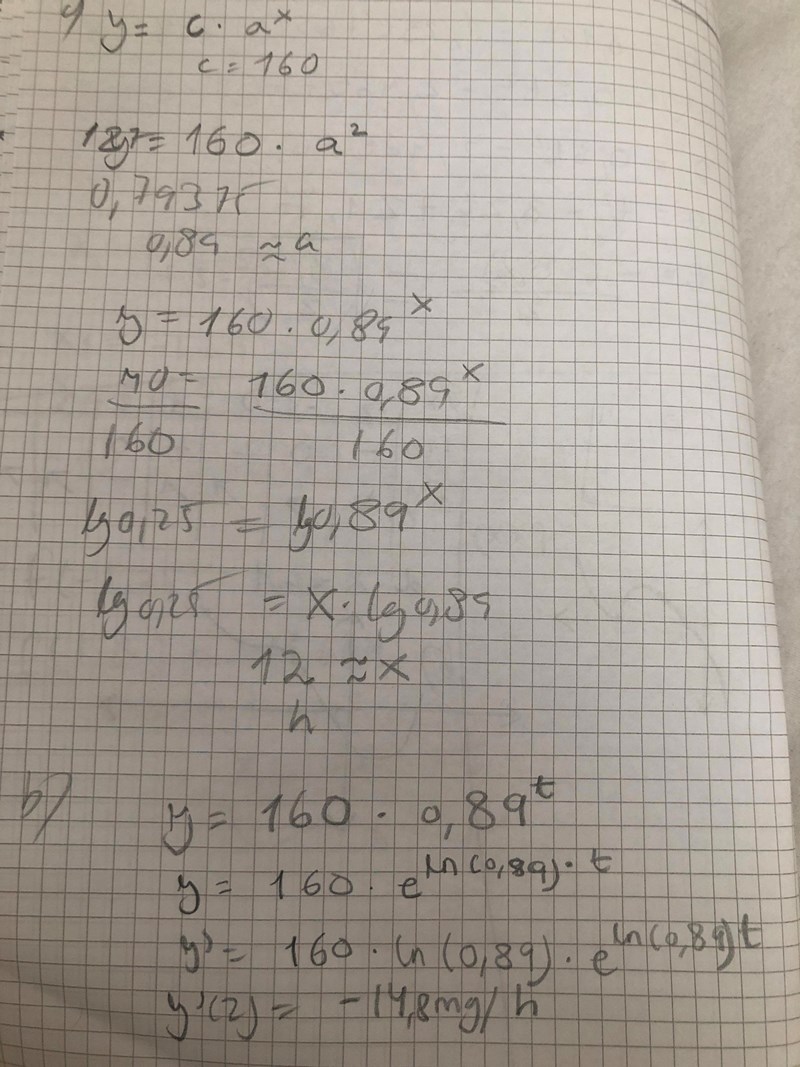 y = c · a^x
c = 160
127 = 160 · a²
0,79375
0,89 ≈ a
y = 160 · 0,89^x
40 = 160 · 0,89^x
160 160
lg 0,25 = lg 0,89^x
lg 0,25 = x · lg 0,89
12 ≈ x
h
b) y = 160 · 0,89^t
y = 160 · e^ln(0,89) · t
y' = 160 · ln(0,89) · e^ln(0,89)t
y'(2) = -14,8mg/h